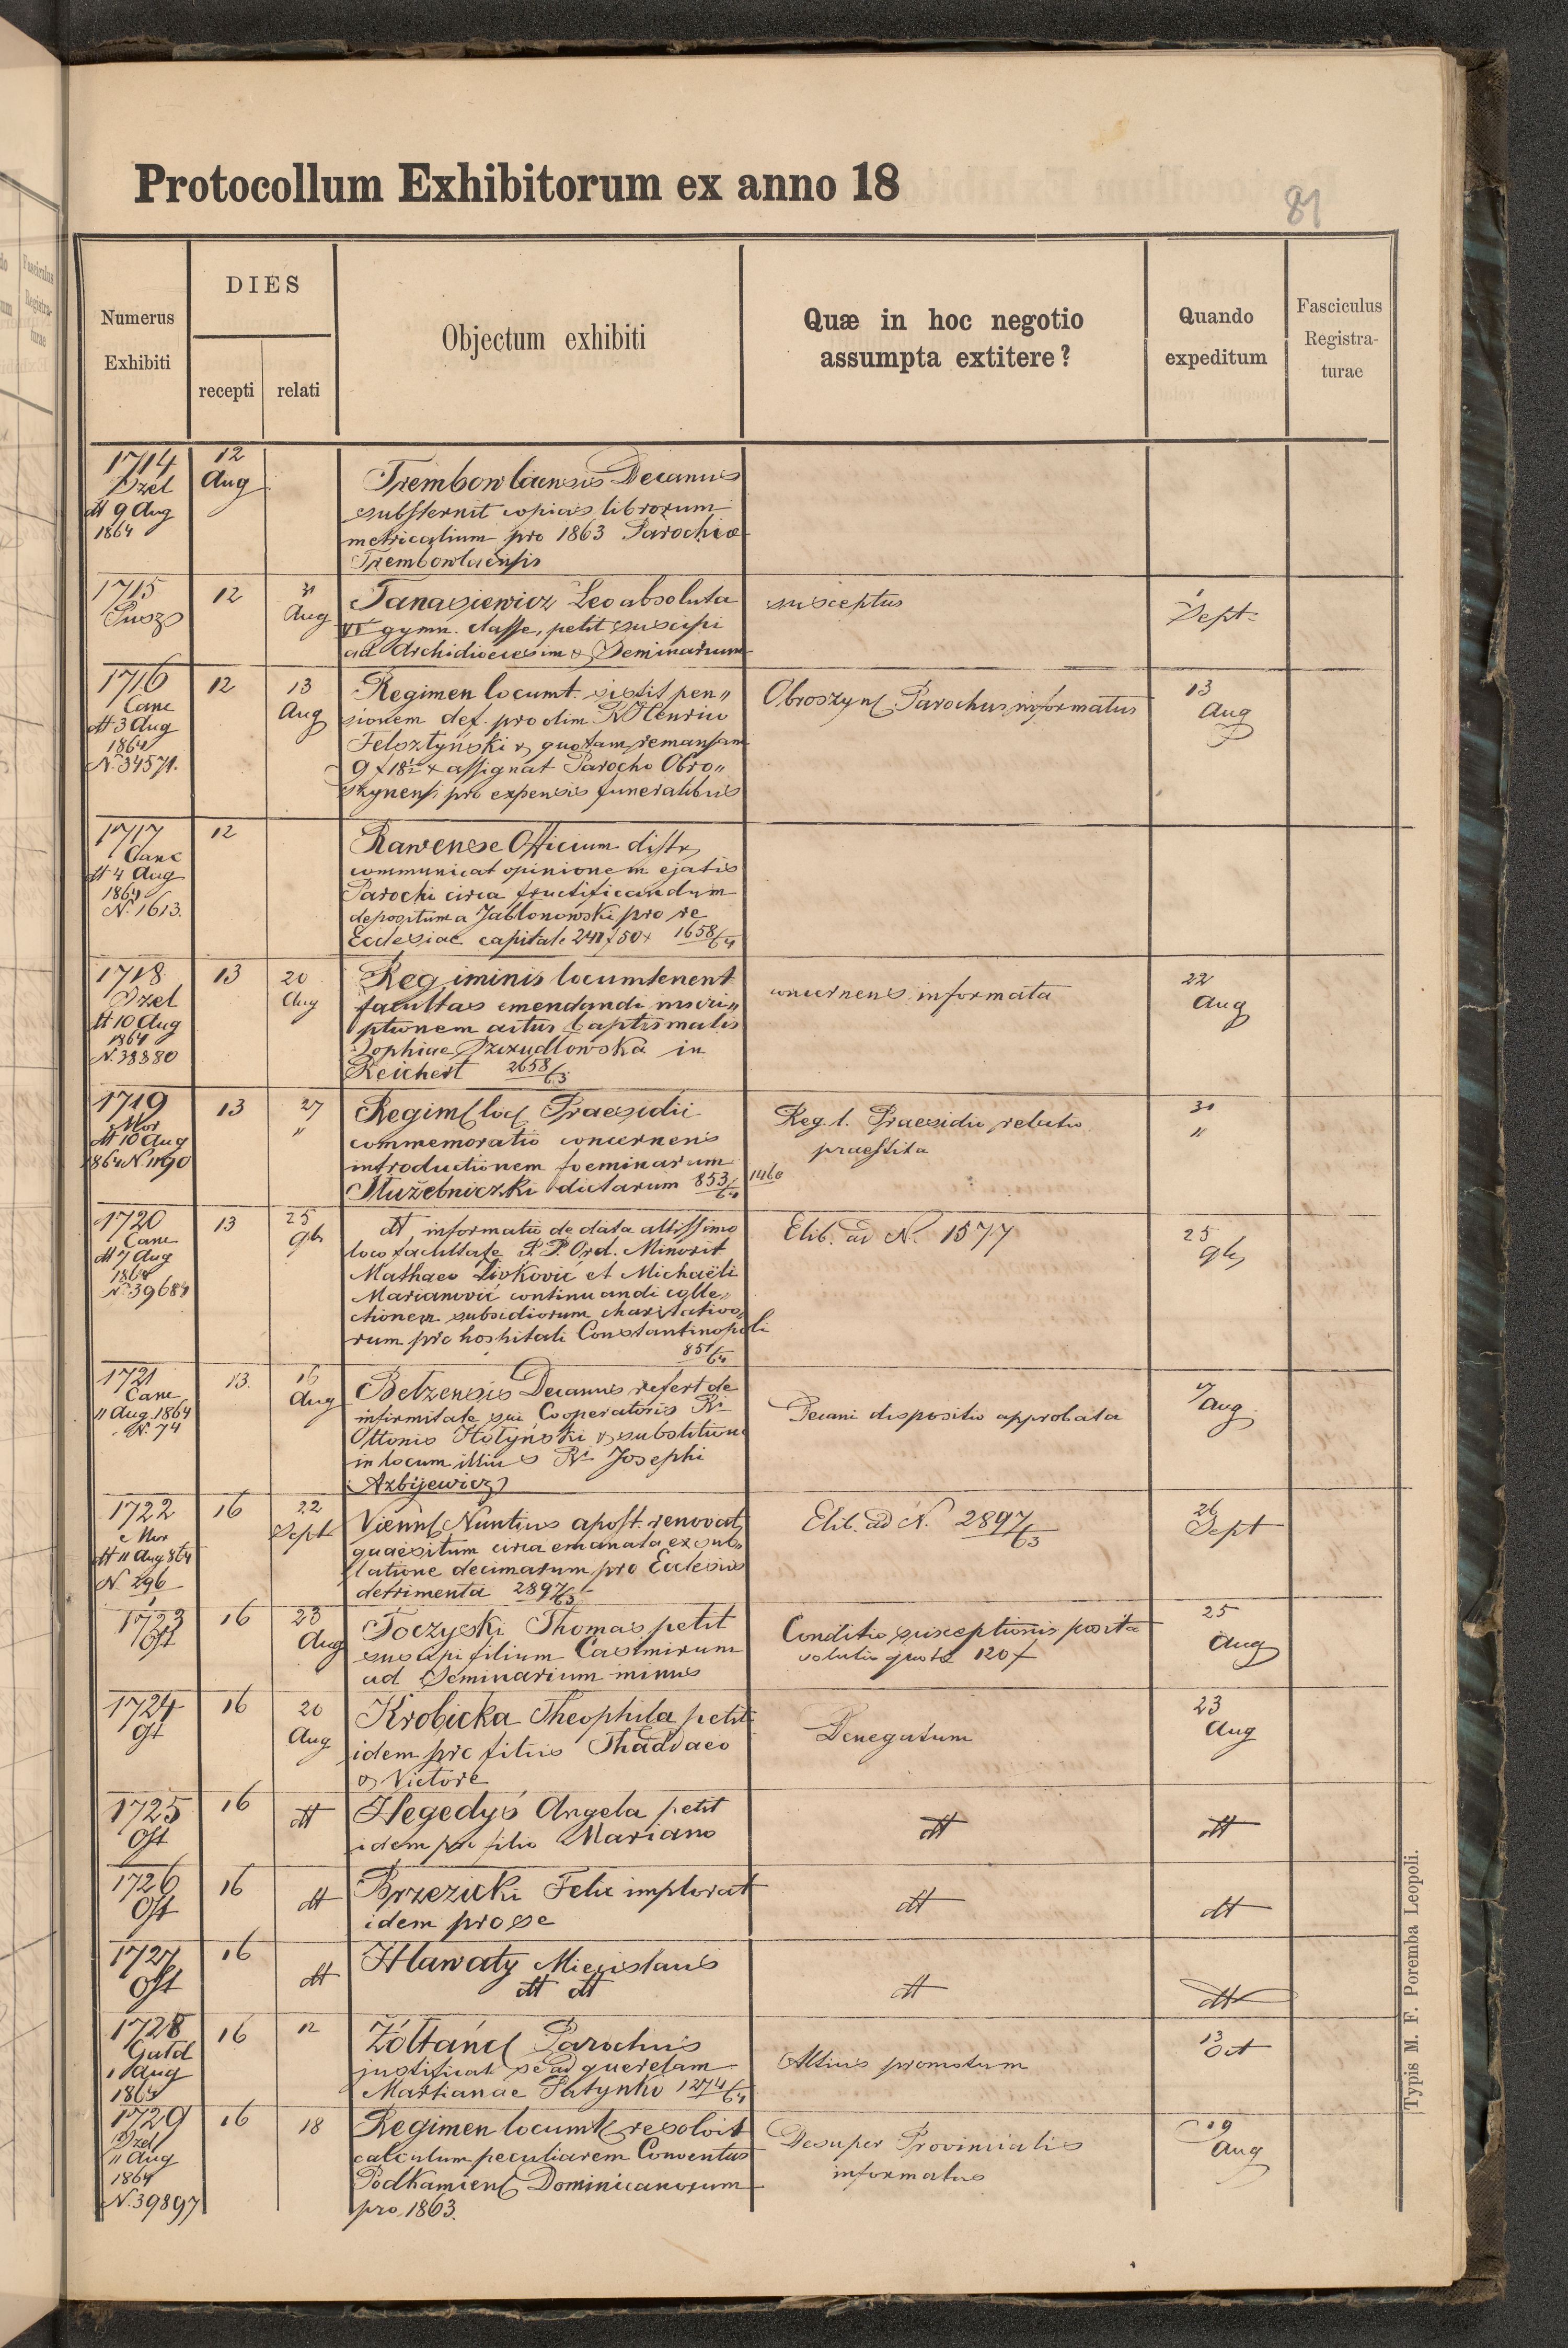 Protocollum Exhibitorum ex anno 18
81
Numerus
Exhibiti
DIES
recepti
relati
Objectum exhibiti
Quæ in hoc negotio
assumpta extitere?
Quando
expeditum
Fasciculus
Registra-
turae
1714
dtt 9 Aug
1864
12
Aug
Trembowlaensis Decanus
substernit copias librorum
metricalium pro 1863 Parochiae
Trembowlaensis
1715
12
31
Aug
Tanasiewicz Leo absoluta
VI gymn. classe, petit suscipi
ad Archidioecesim & Seminarium
susceptus
1
Sept
1716
Canc
dtt 3 Aug
1864
N. 34571.
12
13
Aug
Regimen locumt. sistit pen„
sionem def. pro olim R. Henrico
Felsztyński & quotam remansam
assignat Parocho Obro„
pro expensis funeralibus
Obroszyn Parochus informatus
13
Aug
1717
Canc
dtt 4 Aug
1864
N. 1613.
12
Rawense Officium distr
communicat opinionem ejatis
Parochi circa fructificandum
depositum a Jabłonowski pro re
Ecclesiae capitale 1658/64
1718
dtt 10 Aug
1864
N. 38380
13
20
Aug
Regiminis locumtenent
facultas emendandi inscri„
ptionem actus baptismalis
Sophiae in
Reichert 2658/63
concernens informata
22
Aug
1719
Mor
dtt 10 Aug
1864 N. 1190
13
27
"
Regim loc Praesidii
commemoratio concernens
introductionem foeminarum
Służebniczki dictarum 853/64 1460
Reg. l. Praesidio relatio
praestita
30
"
1720
Canc
dtt 7 Aug
1864
N. 39684
13
25
9b
dtt informatio de data altissimo
loco facultate P. P. Ord. Minorit
Mathaeo Živković et Michaëli
Marianović continuandi colle„
ctionem subsidiorum charitativo„
rum pro hospitali Constantinopoli
851/64
Elib. ad N. 1577
25
9b
1721
Canc
11 Aug. 1864
N. 74
13.
16
Aug
Betzensis Decanus refert de
infirmitate sui Cooperatoris Ri
Ottonis Hołyński & substitutione
in locum illius Ri Josephi
Azbijewicz
Decani dispositio approbata
17
Aug
1722
Mor
dtt 11 Aug 864
N 296
16
22
Sept
Vienn Nuntius apost. renovat
quaesitum circa emanata ex sub„
latione decimarum pro Ecclesiis
detrimenta 2897/63
Elib. ad N. 2897/63
26
Sept
1723
Ost
16
23
Aug
Toczyski Thomas petit
suscipi filium Casimirum
ad Seminarium minus
Conditio susceptionis posita
solutio quotae 120 f
25
Aug
1724
gt
16
20
Aug
Krobicka Theophila petit
idem pro filiis Thaddaeo
& Victore
Denegatum
23
Aug
1725
Ost
16
dtt
Hegedyś Angela petit
idem pro filio Mariano
dtt
dtt
1726
Ost
16
dtt
Brzezicki Felix implorat
idem pro se
dtt
dtt
1727
Ost
16
dtt
Hlawaty Miecislaus
dtt dtt
dtt
dtt
1728
1 Aug
1864
16
12
Żółtańc Parochus
justificat se ad querelam
Martianae 1274/64
Altius promotum
13
Oct
1729
11 Aug
1864
N. 39897
16
18
Regimen locumt resolvit
calculum peculiarem Conventus
Podkamien Dominicanorum
pro 1863.
Desuper Provincialis
informatus
19
Aug
Typis M. F. Poremba Leopoli.